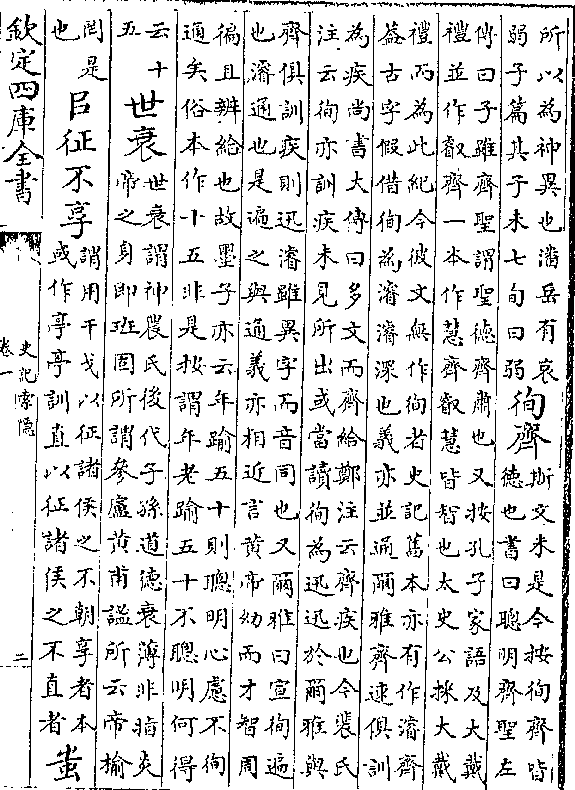 所以為神異也潘岳有哀
弱子篇其子未七旬曰弱
徇齊
斯文未是今按徇齊皆
德也書曰聰明齊聖左
傳曰子雖齊聖謂聖德齊肅也又按孔子家語及大戴
禮並作叡齊一本作慧齊叡慧皆智也太史公採大戴
禮而為此紀今彼文無作徇者史記舊本亦有作濬齊
蓋古字假借徇為濬濬深也義亦並通爾雅齊速俱訓
為疾尚書大傳曰多文而齊給鄭注云齊疾也今裴氏
注云徇亦訓疾未見所出或當讀徇為迅迅於爾雅與
齊俱訓疾則迅濬雖異字而音同也又爾雅曰宣徇遍
也濬通也是遍之與通義亦相近言黃帝幼而才智周
徧且辨給也故墨子亦云年踰五十則聰明心慮不徇
通矣俗本作十五非是按謂年老踰五十不聰明何得
云十
五
世衰
世衰謂神農氏後代子孫道德衰薄非指炎
帝之身即班固所謂參盧黃甫謐所云帝榆
罔是
也
㠯征不享
謂用干戈以征諸侯之不朝享者本
或作亭亭訓直以征諸侯之不直者
蚩
欽定四庫全書
史記索隱
卷一
二